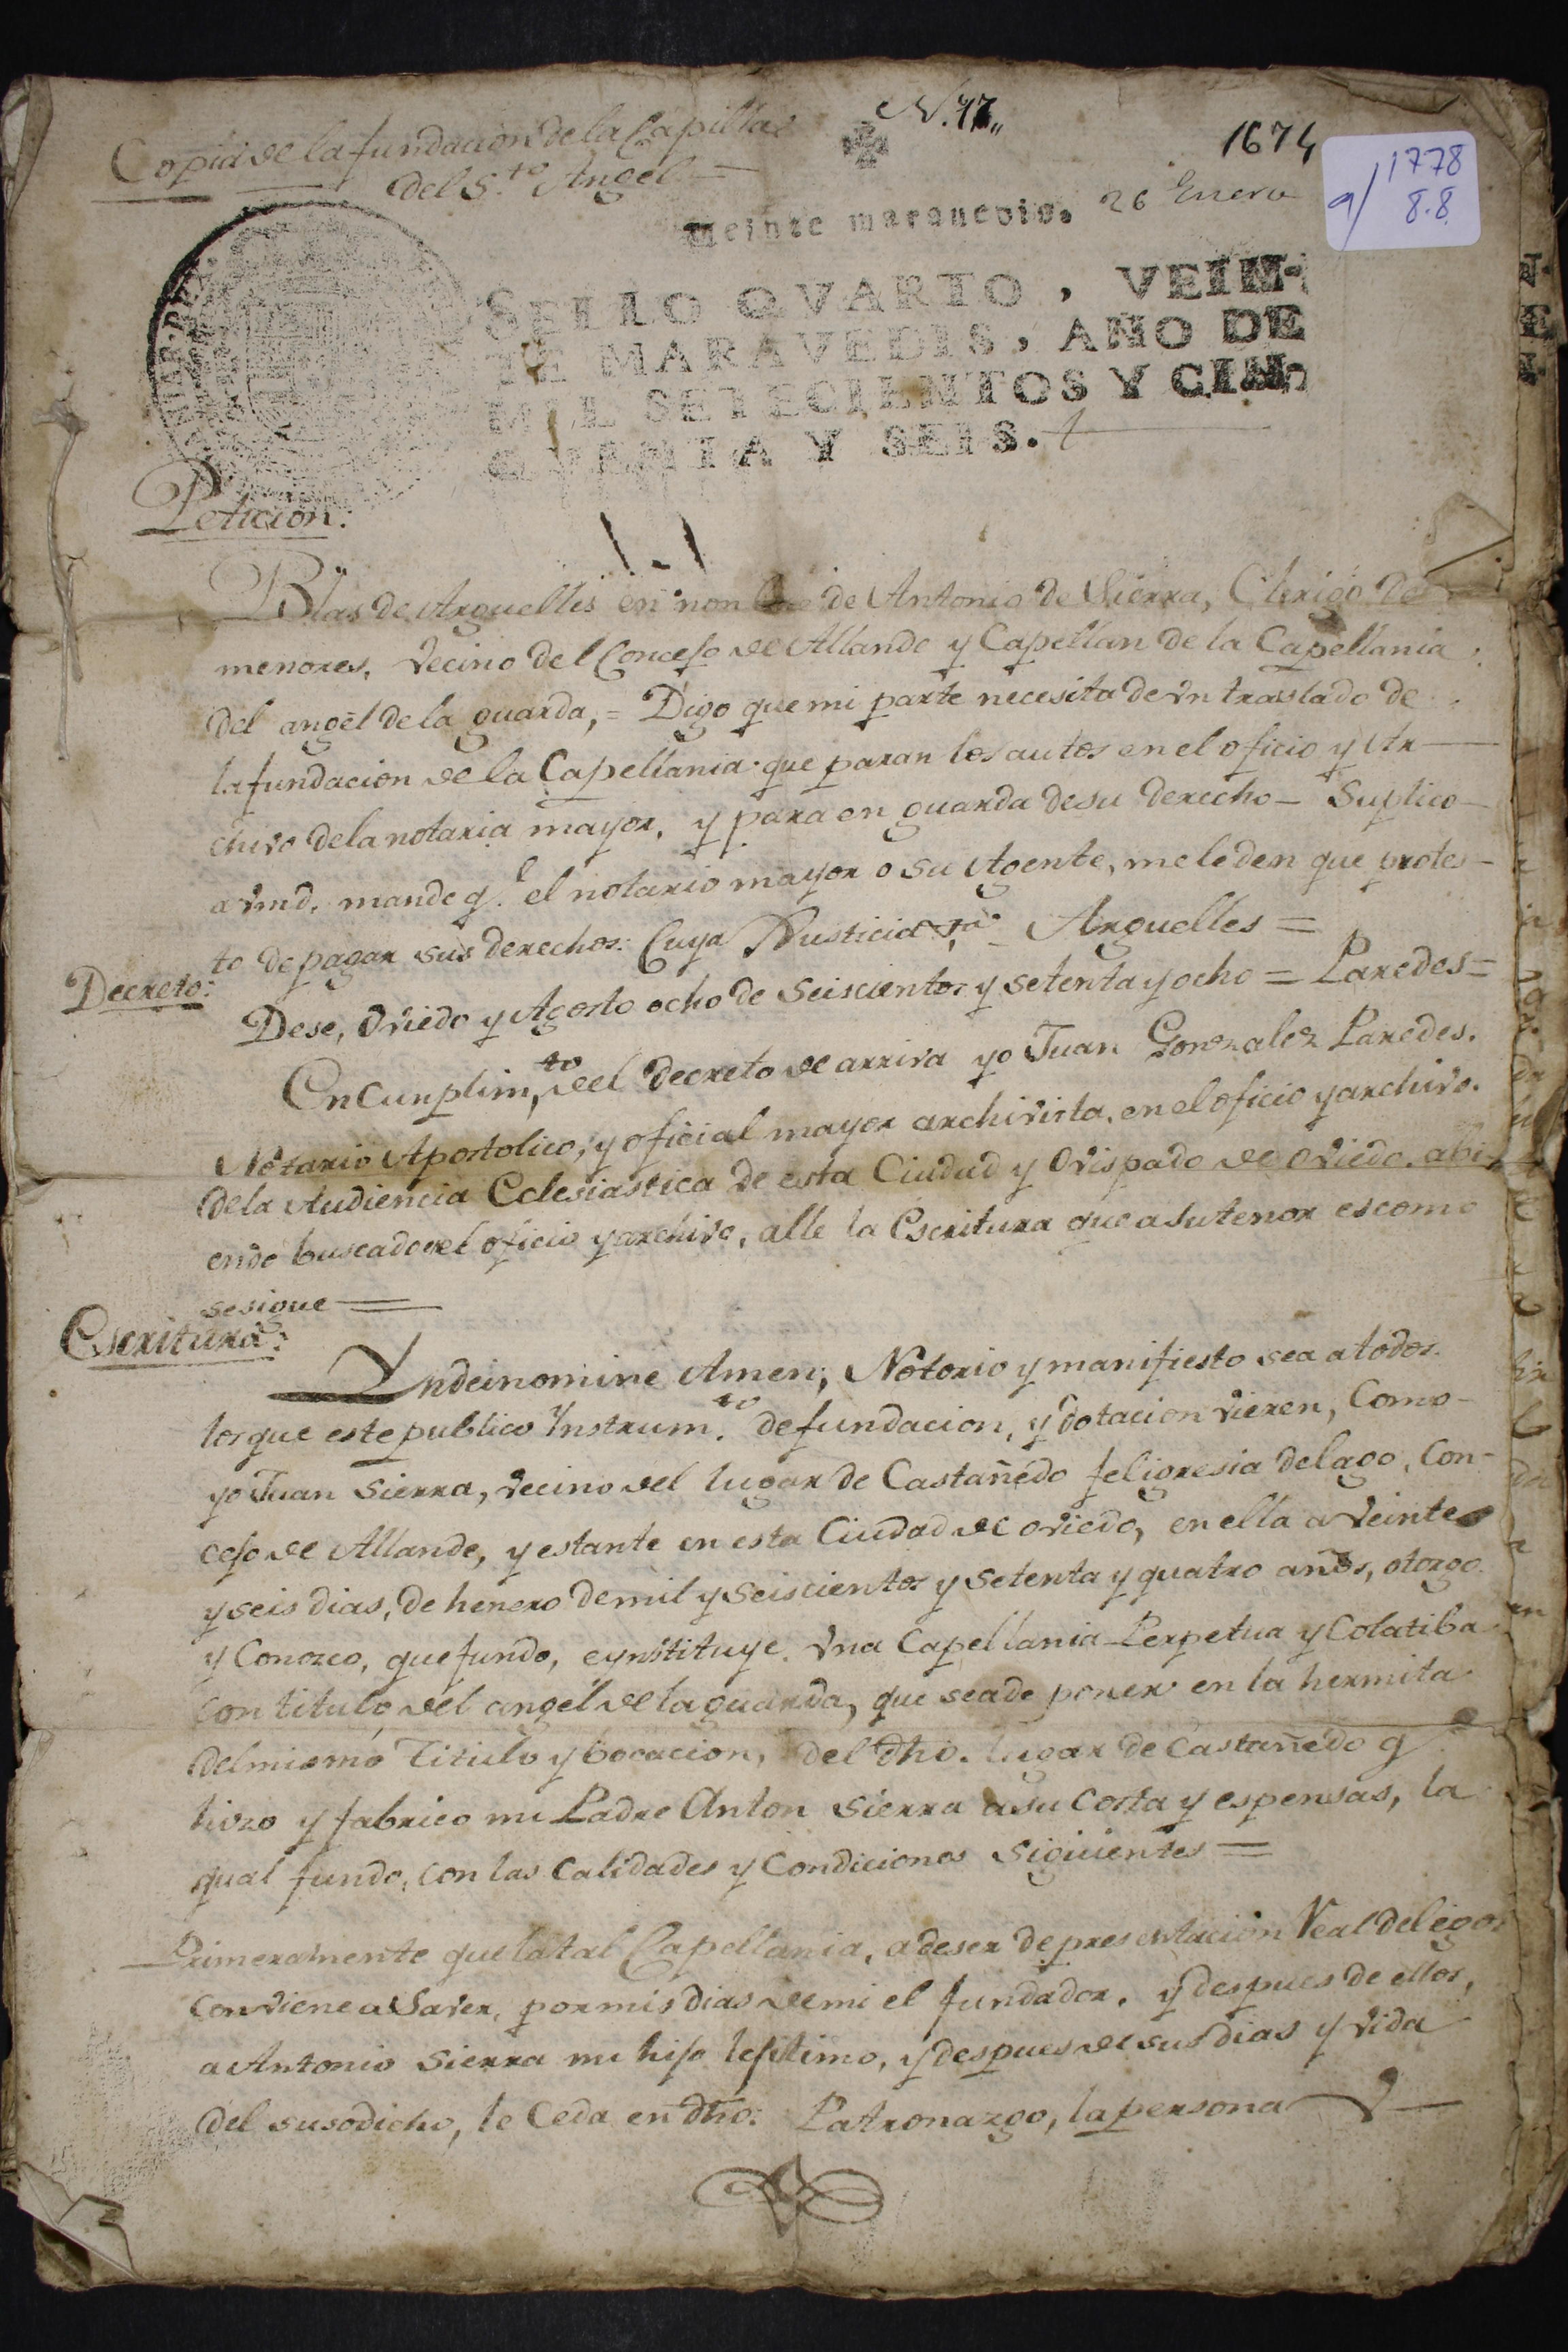 N. 17,,
1674
Copia de la fundacion de la Capilla
del S.to Angel =
Veinte maravedis. 26 Enero
1778
a/ 8.8
SELLO QVARTO, VEIN-
TE MARAVEDIS, AÑO DE
MIL SETECIENTOS Y CIN-
QVENTA Y SEIS.
Peticion:
Blas de Arguelles en nonbre de Antonio de Sierra, Clerigo de
menores, vecino del Concejo de Allande y Capellan de la Capellania
del angel de la guarda, = Digo que mi parte necesita de vn traslado de
la fundacion de la Capellania que paran los autos en el oficio y Ar-
chivo de la notaria mayor, y para en guarda de su derecho - Suplico -
a vmd. mande q.e el notario mayor o su Agente, me le den que protes-
to de pagar sus derechos: Cuya Justicia Arguelles =
Decreto:
Dese, Oviedo y Agosto ocho de seiscientos y setenta y ocho = Paredes =
En Cunplim.to del decreto de arriva yo Juan Gonzalez Paredes.
Notario Apostolico, y oficial mayor archivista, en el oficio y archivo.
de la Audiencia Eclesiastica de esta Ciudad y Ovispado de Oviedo. abi-
endo buscado el oficio y archivo, alle la Escritura que a su tenor es como
se sigue =
Escritura:
Yn dei nomine Amen; Notorio y manifiesto sea a todos.
los que este publico Ynstrum.to de fundacion, y dotacion vieren, Como -
yo Juan Sierra, vecino del lugar de Castañedo feligresia de lago, Con-
cejo de Allande, y estante en esta Ciudad de oviedo, en ella a veinte
y seis dias, de henero de mil y seiscientos y setenta y quatro años, otorgo
y Conozco, que fundo, e ynstituye. vna Capellania Perpetua y Colatiba
con titulo del angel de la guarda, que se a de poner en la hermita
del mismo Titulo y bocacion, del dho. lugar de Castañedo q
hizo y fabrico mi Padre Anton Sierra a su costa y espensas, la
qual fundo, con las Calidades y Condiciones siguientes =
Primeramente que la tal Capellania, a de ser de presentacion Real de legos
conviene a Saver, por mis dias de mi el fundador, y despues de ellos,
a Antonio Sierra mi hijo lejitimo, y despues de sus dias y vida
del susodicho, le Ceda en dho: Patronazgo, la persona